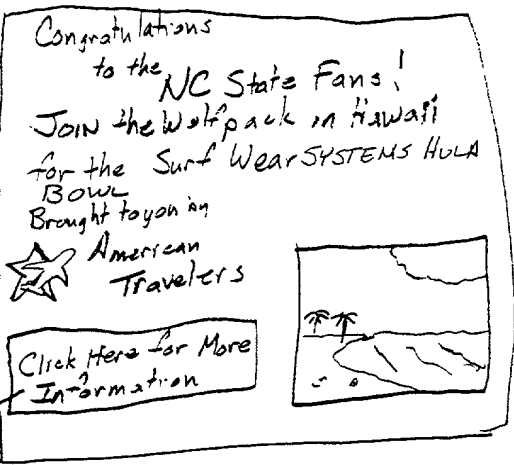 Congratulations
to the
NC State Fans!
Join the Wolfpack in Hawaii
for the Surf Wear SYSTEMS HULA
BOWL
Brought to you by
American
Travelers
Click Here for More
Information